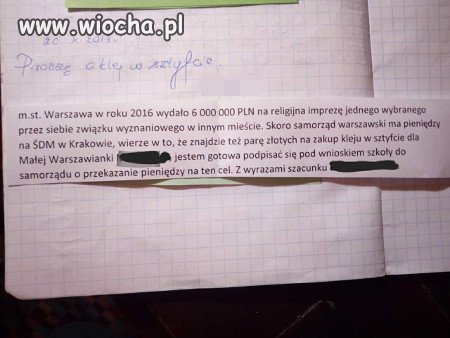 www.wiocha.pl
20 X 2017r.
Proszę o klej w sztyfcie.
m.st. Warszawa w roku 2016 wydało 6 000 000 PLN na religijna imprezę jednego wybranego
przez siebie związku wyznaniowego w innym mieście. Skoro samorząd warszawski ma pieniędzy
na ŚDM w Krakowie, wierze w to, że znajdzie też parę złotych na zakup kleju w sztyfcie dla
Małej Warszawianki jestem gotowa podpisać się pod wnioskiem szkoły do
samorządu o przekazanie pieniędzy na ten cel. Z wyrazami szacunku